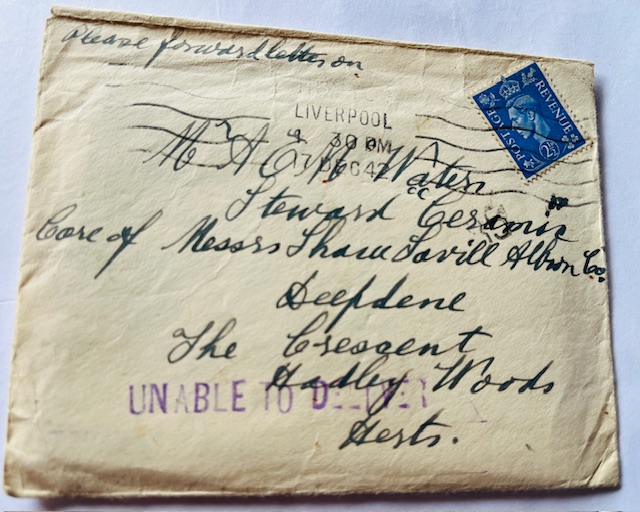 Please forward letter on
POSTAGE REVENUE 2½D
LIVERPOOL
30 PM
17 DEC 42
Mr A E W Waters
Steward "Ceramic"
Care of Messrs Shaw Savill Albion Co.
Deepdene
The Crescent
Hadley Woods
UNABLE TO DELIVER
Herts.